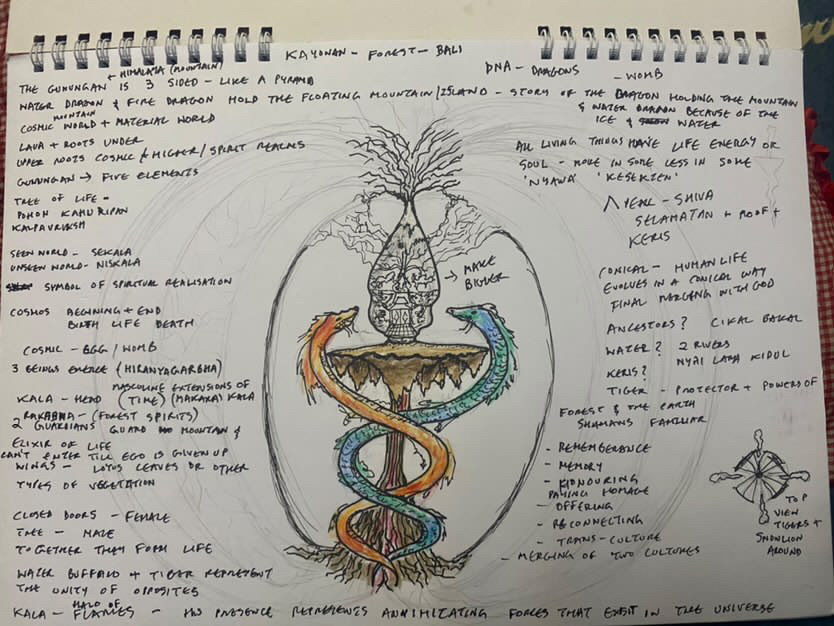 KAYONAN - FOREST - BALI
+ HIMALAYA (MOUNTAIN)
THE GUNUNGAN IS 3 SIDED - LIKE A PYRAMID
WATER DRAGON & FIRE DRAGON HOLD THE FLOATING MOUNTAIN/ISLAND - STORY OF THE DRAGON HOLDING THE MOUNTAIN
& WATER DRAGON BECAUSE OF THE
ICE & WATER
MOUNTAIN
COSMIC WORLD + MATERIAL WORLD
LAVA + ROOTS UNDER
UPPER ROOTS COSMIC / HIGHER / SPIRIT REALMS
GUNUNGAN → FIVE ELEMENTS
TREE OF LIFE =
POHON KAHURIPAN
KALPAVRIKSH
SEEN WORLD - SEKALA
UNSEEN WORLD - NISKALA
SYMBOL OF SPIRITUAL REALISATION
COSMOS BEGINNING + END
BIRTH LIFE DEATH
COSMIC - EGG / WOMB
3 BEINGS EMERGE (HIRANYAGARBHA)
MASCULINE EXTENSIONS OF
KALA - HEAD (TIME) (MAKARA) KALA
(FOREST SPIRITS)
2 GUARDIANS GUARD MOUNTAIN &
ELIXIR OF LIFE
CAN'T ENTER TILL EGO IS GIVEN UP
WINGS - LOTUS LEAVES OR OTHER
TYPES OF VEGETATION
CLOSED DOORS - FEMALE
TREE - MALE
TOGETHER THEY FORM LIFE
WATER BUFFALO + TIGER REPRESENT
THE UNITY OF OPPOSITES
HALO OF
KALA - FLAMES - HIS PRESENCE REPRESENTS ANNIHILATING FORCES THAT EXIST IN THE UNIVERSE
→ MAKE
BIGGER
DNA - DRAGONS - WOMB
ALL LIVING THINGS HAVE LIFE ENERGY OR
SOUL - MORE IN SOME LESS IN SOME
'NYAWA' 'KESEKTEN'
- SHIVA
SELAMATAN + ROOF +
KERIS
CONICAL - HUMAN LIFE
EVOLVES IN A CONICAL WAY
FINAL MERGING WITH GOD
ANCESTORS? CIKAL BAKAL
WATER? 2 RIVERS
KERIS? NYAI LARA KIDUL
TIGER - PROTECTOR + POWERS OF
FOREST & THE EARTH
SHAMANS FAMILIAR
- REMEMBERENCE
- MEMORY
- HONOURING
PAYING HOMAGE
- OFFERING
- RECONNECTING
- TRANS-CULTURE
- MERGING OF TWO CULTURES
TOP
VIEW
TIGERS +
SNOWLION
AROUND